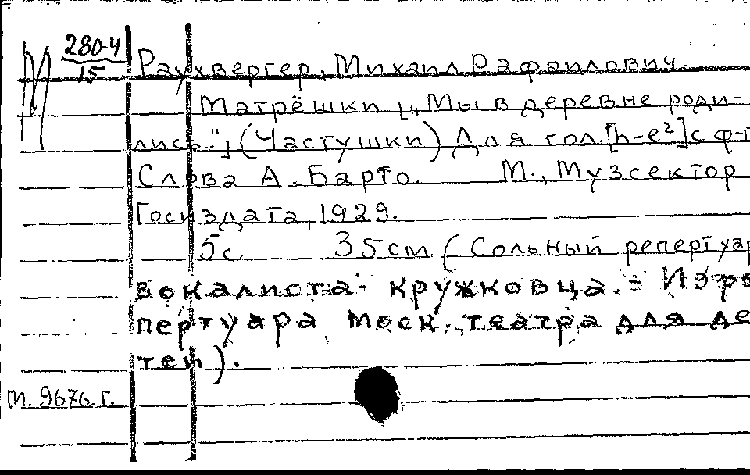 М 280-4
15
Раухвергер, Михаил Рафаилович.
Матрёшки [„Мы в деревне роди-
лись."] (Частушки) Для гол. [h-e²] с ф-п
Слова А. Барто. М., Музсектор
Госиздата, 1929.
5 с. 35 cm (Сольный репертуар
вокалиста-кружковца. = Из ре
пертуара Моск. театра для де
тей).
М. 9676 г.